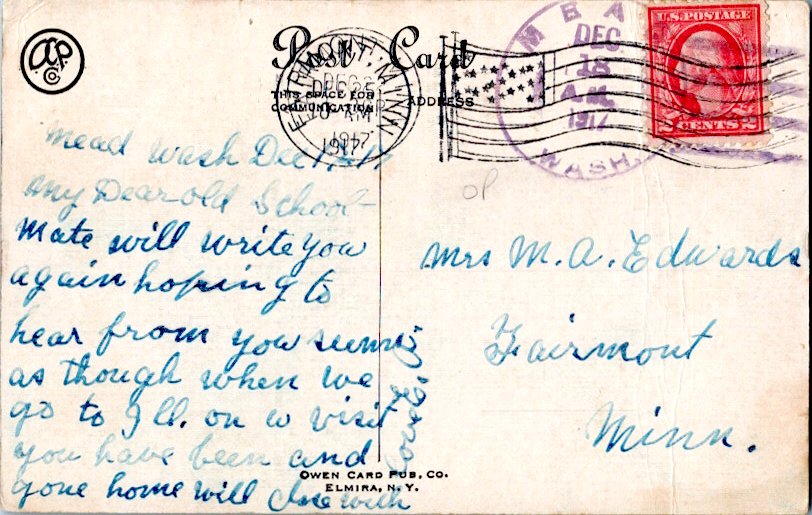 Post Card
THIS SPACE FOR
COMMUNICATION
ADDRESS
FAIRMONT, MINN
DEC 25
AM
1917
DEC
18
A.M.
1917
WASH.
U.S. POSTAGE
2 CENTS 2
OP
Mead Wash Dec
My Dear old School
Mate will write you
again hoping to
hear from you seems
as though when we
go to Ill. on a visit
you have been and
gone home will close with
love
Mrs M. A. Edwards
Fairmont
Minn.
OWEN CARD PUB. CO.
ELMIRA, N.Y.